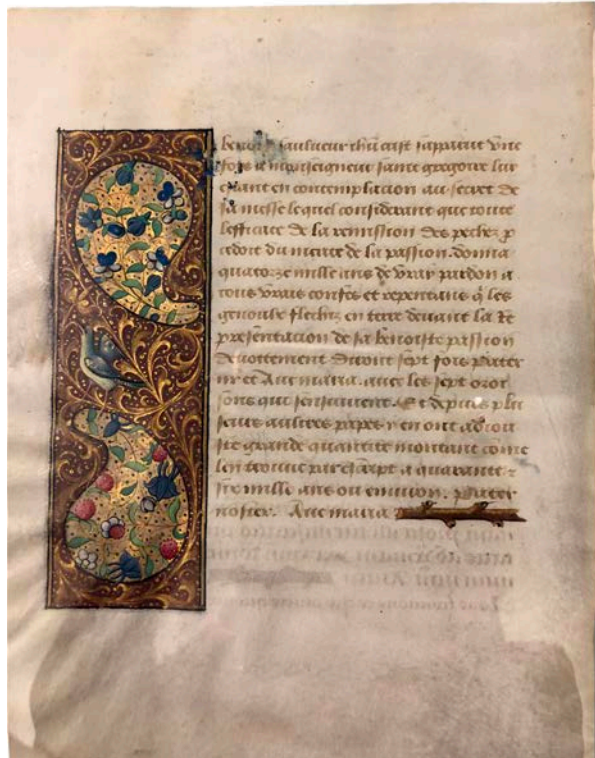 benoist saulueur ihũ crist sapparut vne
fois a monseigneur saint gregoire lui
estant en contemplacion au secret de
sa messe lequel considerant que toute
lefficace de la remission des pechez p
cedoit du merite de la passion. donna
quatorze mille ans de vray pardon a
tous vrais confes et repentans q̃ les
genoulx flechiz en terre deuant la Re
presentacion de sa benoiste passion
deuottement diront sept fois Pater
nr̃ et Aue maria. auec les sept oroi
sons qui sensuiuent. Et depuis plu
seurs aultres papes y en ont adiou
ste grande quantite montant come
len trouue par escript a quarante
mille ans ou enuiron. Pater
noster. Aue maria